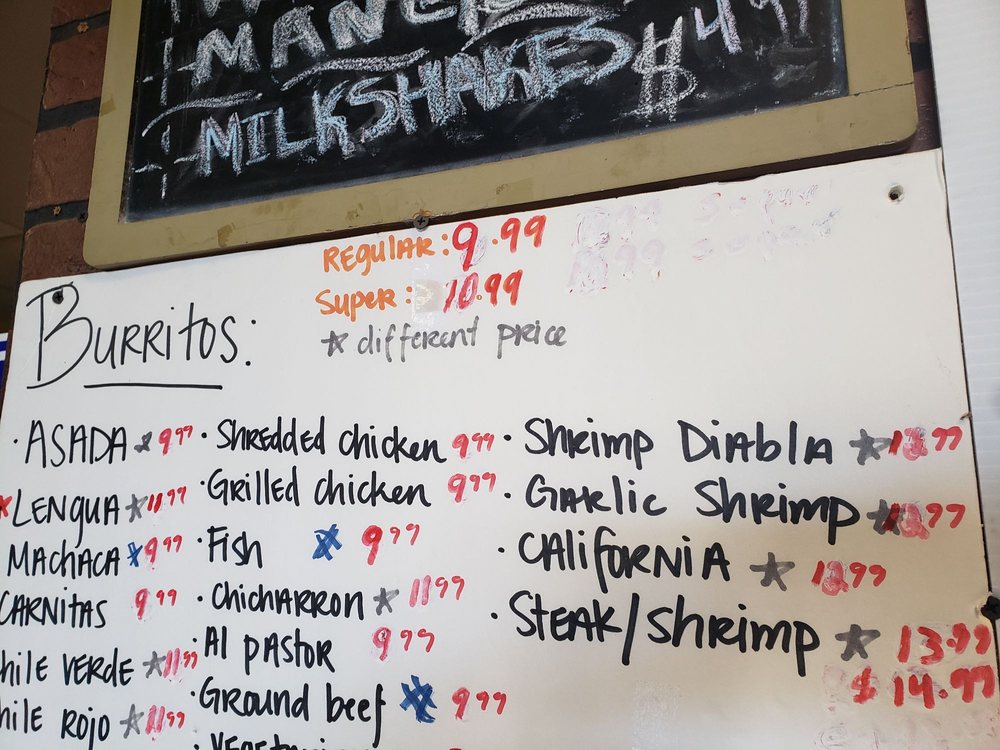 MILKSHAKES $4.99
REGULAR: 9.99
SUPER: 10.99
☆ different price
BURRITOS:
· ASADA ☆ 9.99
LENGUA ☆ 11.99
MACHACA 9.99
CARNITAS 9.99
hile VERDE ☆ 11.99
hile ROJO ☆ 11.99
· Shredded chicken 9.99
· Grilled chicken 9.99
· Fish 9.99
· ChichARRON ☆ 11.99
· Al pASTOR 9.99
· Ground beef 9.99
· Shrimp DiAblA ☆ 13.99
· GARlic Shrimp ☆ 13.99
· CAlifORNiA ☆ 12.99
· STEAK/Shrimp ☆ 13.99
$ 14.99